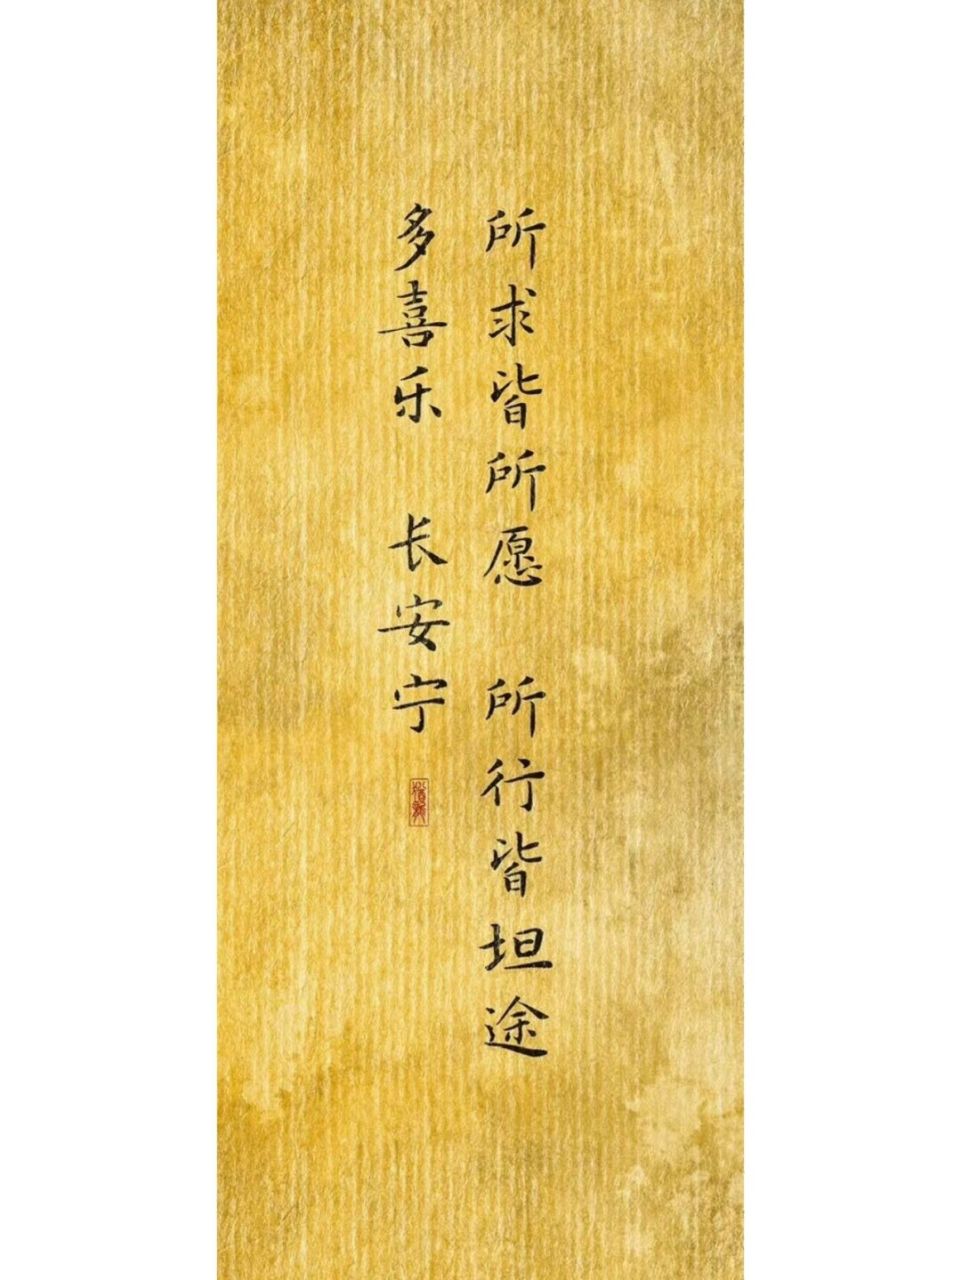 所求皆所愿 所行皆坦途
多喜乐 长安宁